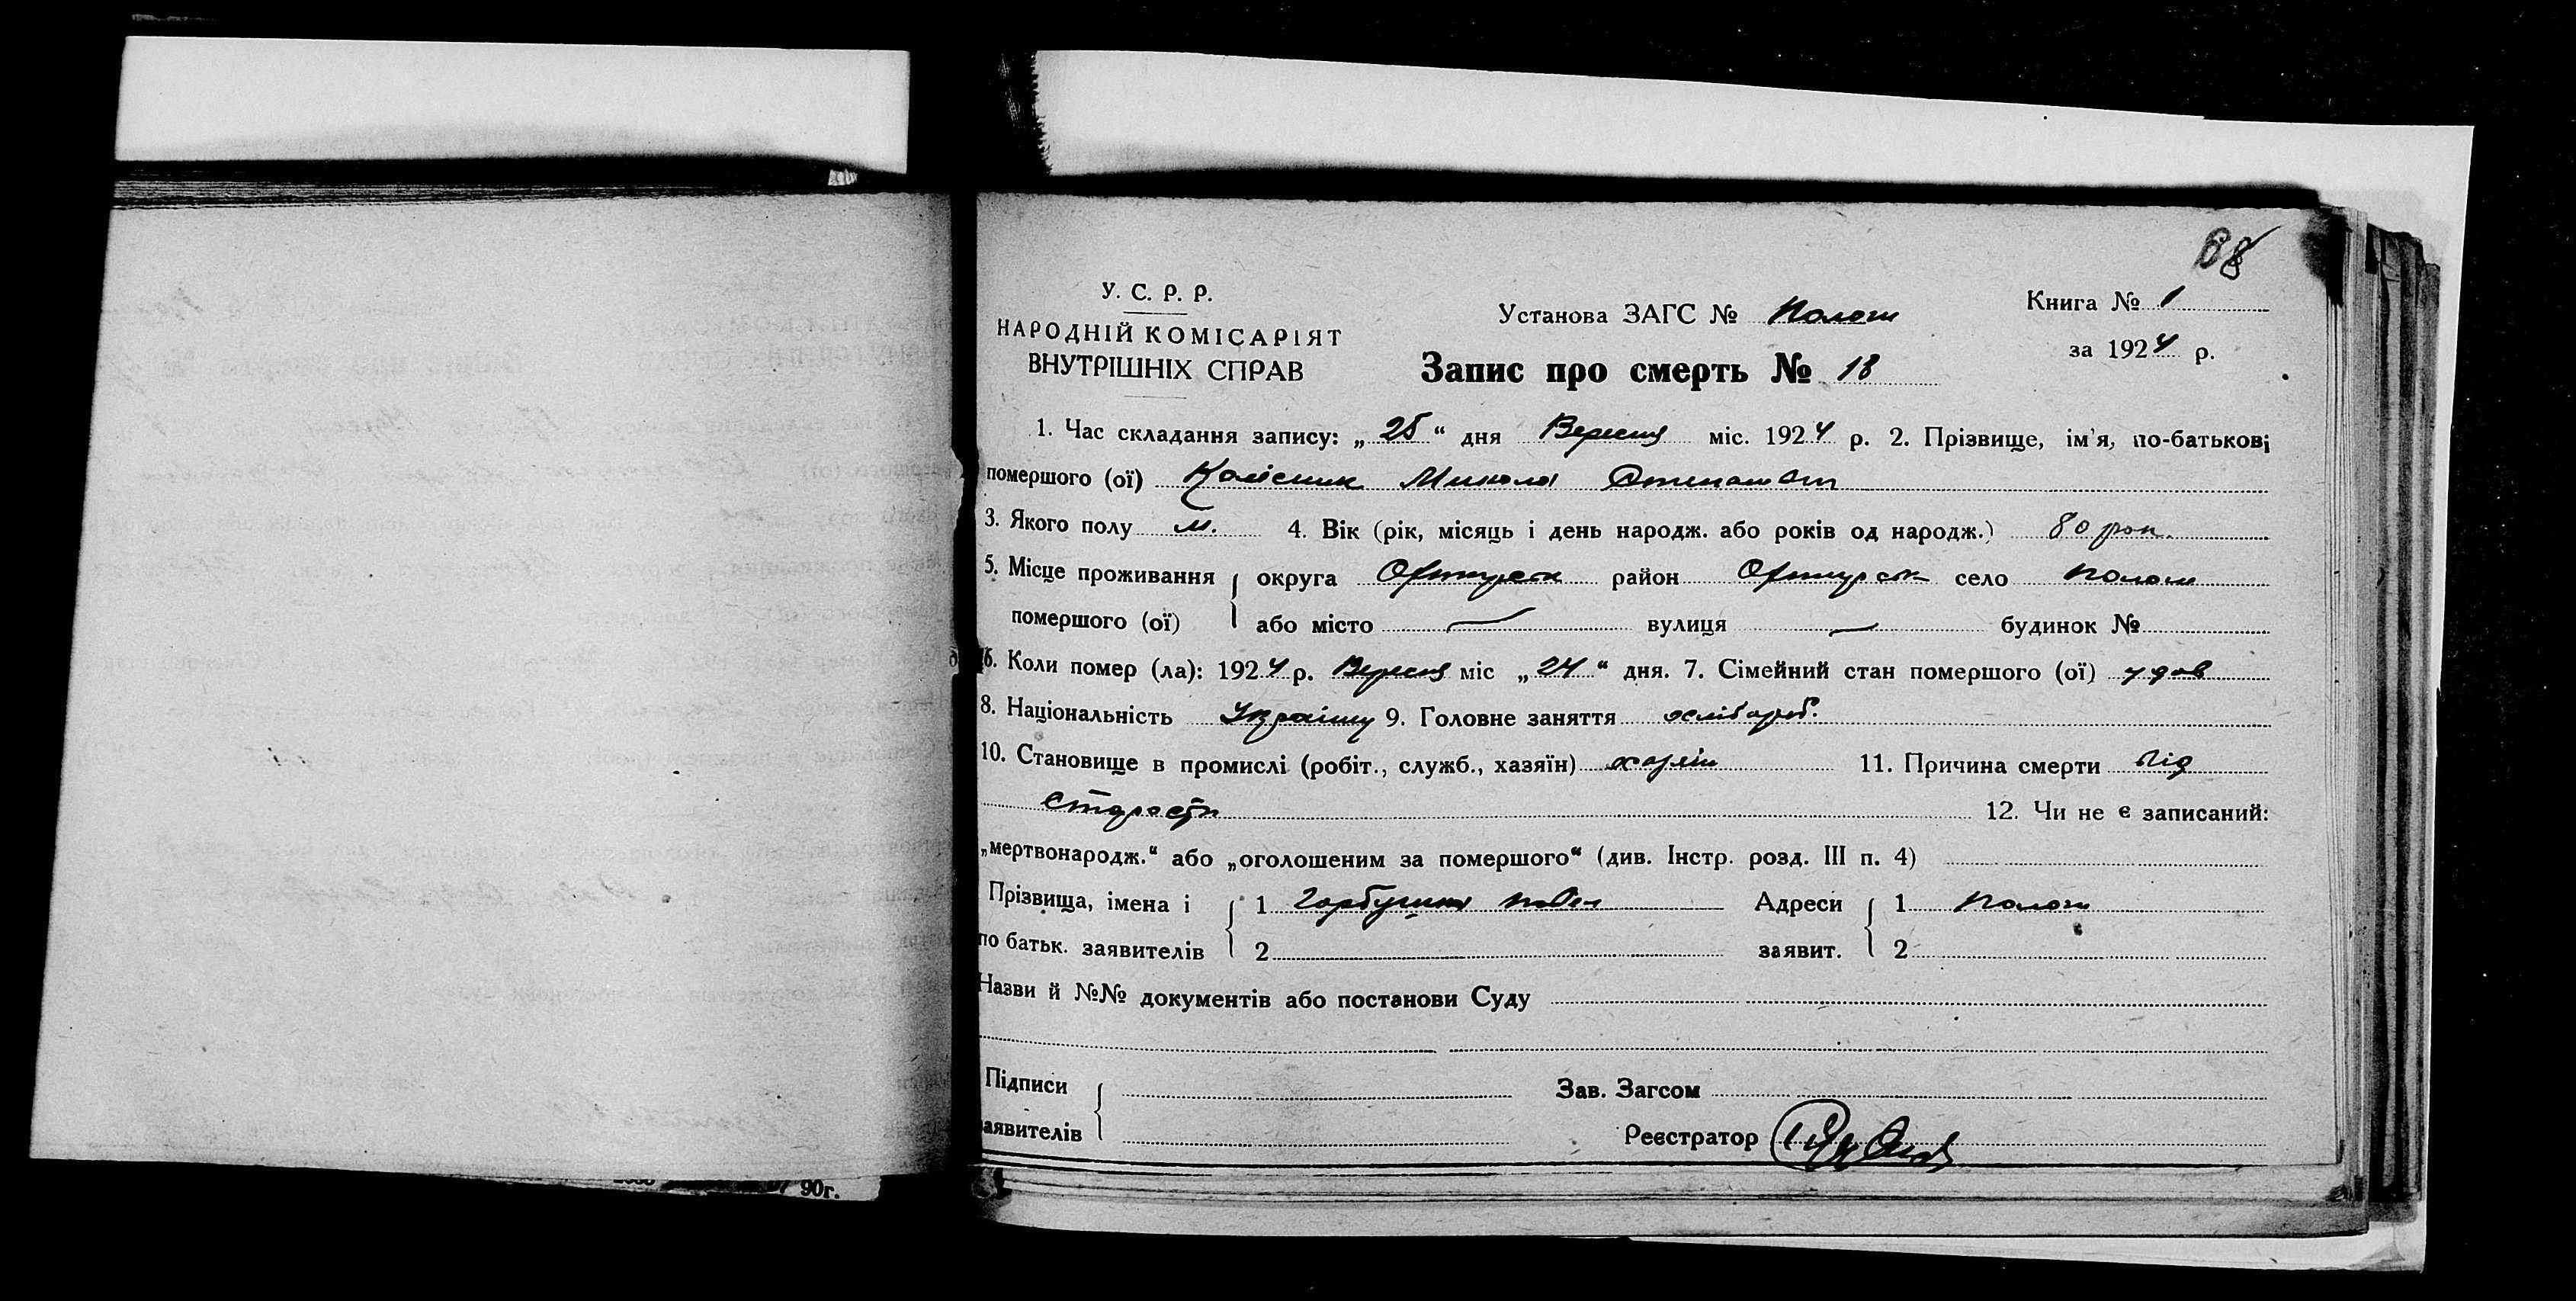 68
У. С. Р. Р.
НАРОДНІЙ КОМІСАРІЯТ
ВНУТРІШНІХ СПРАВ
Установа ЗАГС №
Книга № 1
за 1924 р.
Запис про смерть № 18
1. Час складання запису: „ 25 “ дня Вересня міс. 1924 р. 2. Прізвище, ім'я, по-батькові
помершого (ої) Колісник Микола
3. Якого полу м. 4. Вік (рік, місяць і день народж. або років од народж.) 80 рок.
5. Місце проживання помершого (ої) { округа Охтирськ район Охтирськ село
або місто — вулиця — будинок №
6. Коли помер (ла): 1924 р. Вересня міс „ 24 “ дня. 7. Сімейний стан помершого (ої) удов
8. Національність Україн 9. Головне заняття хлібороб.
10. Становище в промислі (робіт., служб., хазяїн) хазяїн 11. Причина смерти від
старости 12. Чи не є записаний:
„мертвонародж.“ або „оголошеним за помершого“ (див. Інстр. розд. III п. 4)
Прізвища, імена і { 1 Адреси { 1
по батьк. заявителів 2 заявит. 2
Назви й №№ документів або постанови Суду
Підписи { Зав. Загсом
аявителів Реєстратор
90г.